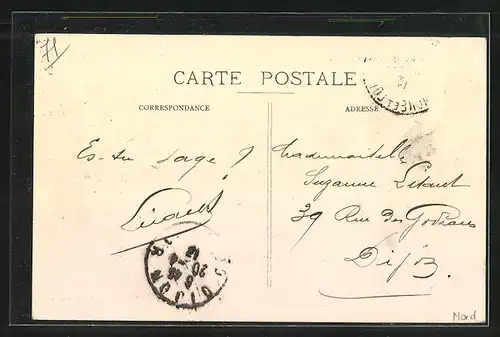 71
CARTE POSTALE
CORRESPONDANCE
ADRESSE
Es-tu sage ?
Mademoiselle
Suzanne
39 Rue des Godrans
Dijon
DIJON
20
Nord